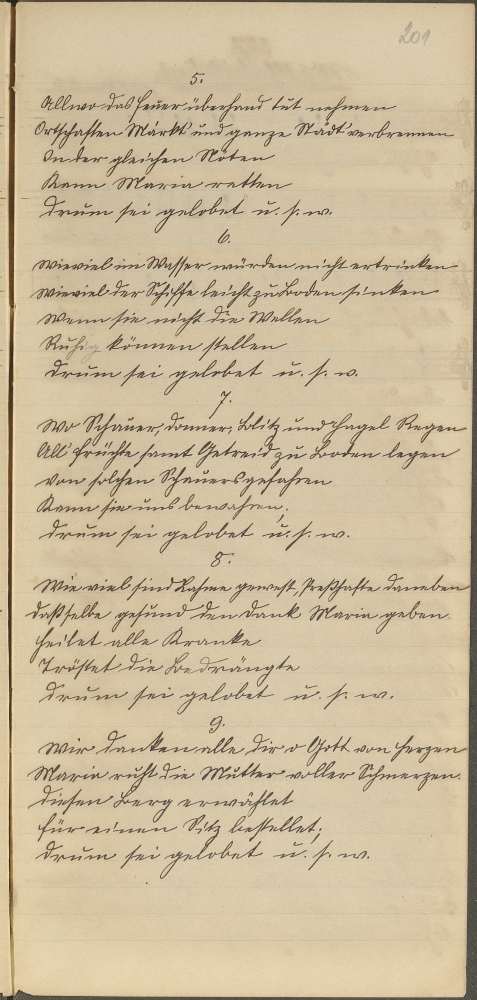 201
5.
Allwo das Feuer überhand tut nehmen
Ortschaften Märkt' und ganze Städt' verbrennen
In der gleichen Nöten
Kann Maria retten
Drum sei gelobet u. s. w.
6.
Wieviel im Wasser würden nicht ertrinken
Wieviel der Schiffe leicht zu Boden sinken
Wenn sie nicht die Wellen
Ruhig können stellen
Drum sei gelobet u. s. w.
7.
Wo Schauer, Donner, Blitz und Hagel Regen
All' Früchte samt Getreid zu Boden legen
Von solchen Schauersgefahren
Kann sie uns bewahren;
Drum sei gelobet u. s. w.
8.
Wie viel sind Lahme gewest, Presthafte daneben
Daß selbe gesund den Dank Maria geben.
Heilet alle Kranke
Tröstet die Bedrängte
Drum sei gelobet u. s. w.
9.
Wir danken alle dir o Gott von Herzen
Maria ruft die Mutter voller Schmerzen.
Diesen Berg erwählet
Für einen Sitz bestellet;
Drum sei gelobet u. s. w.